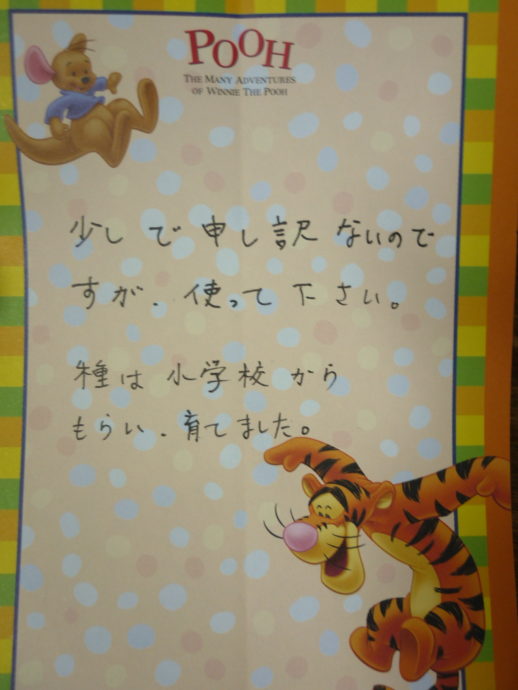 POOH
THE MANY ADVENTURES
OF WINNIE THE POOH
少しで申し訳ないので
すが、使って下さい。
種は小学校から
もらい、育てました。